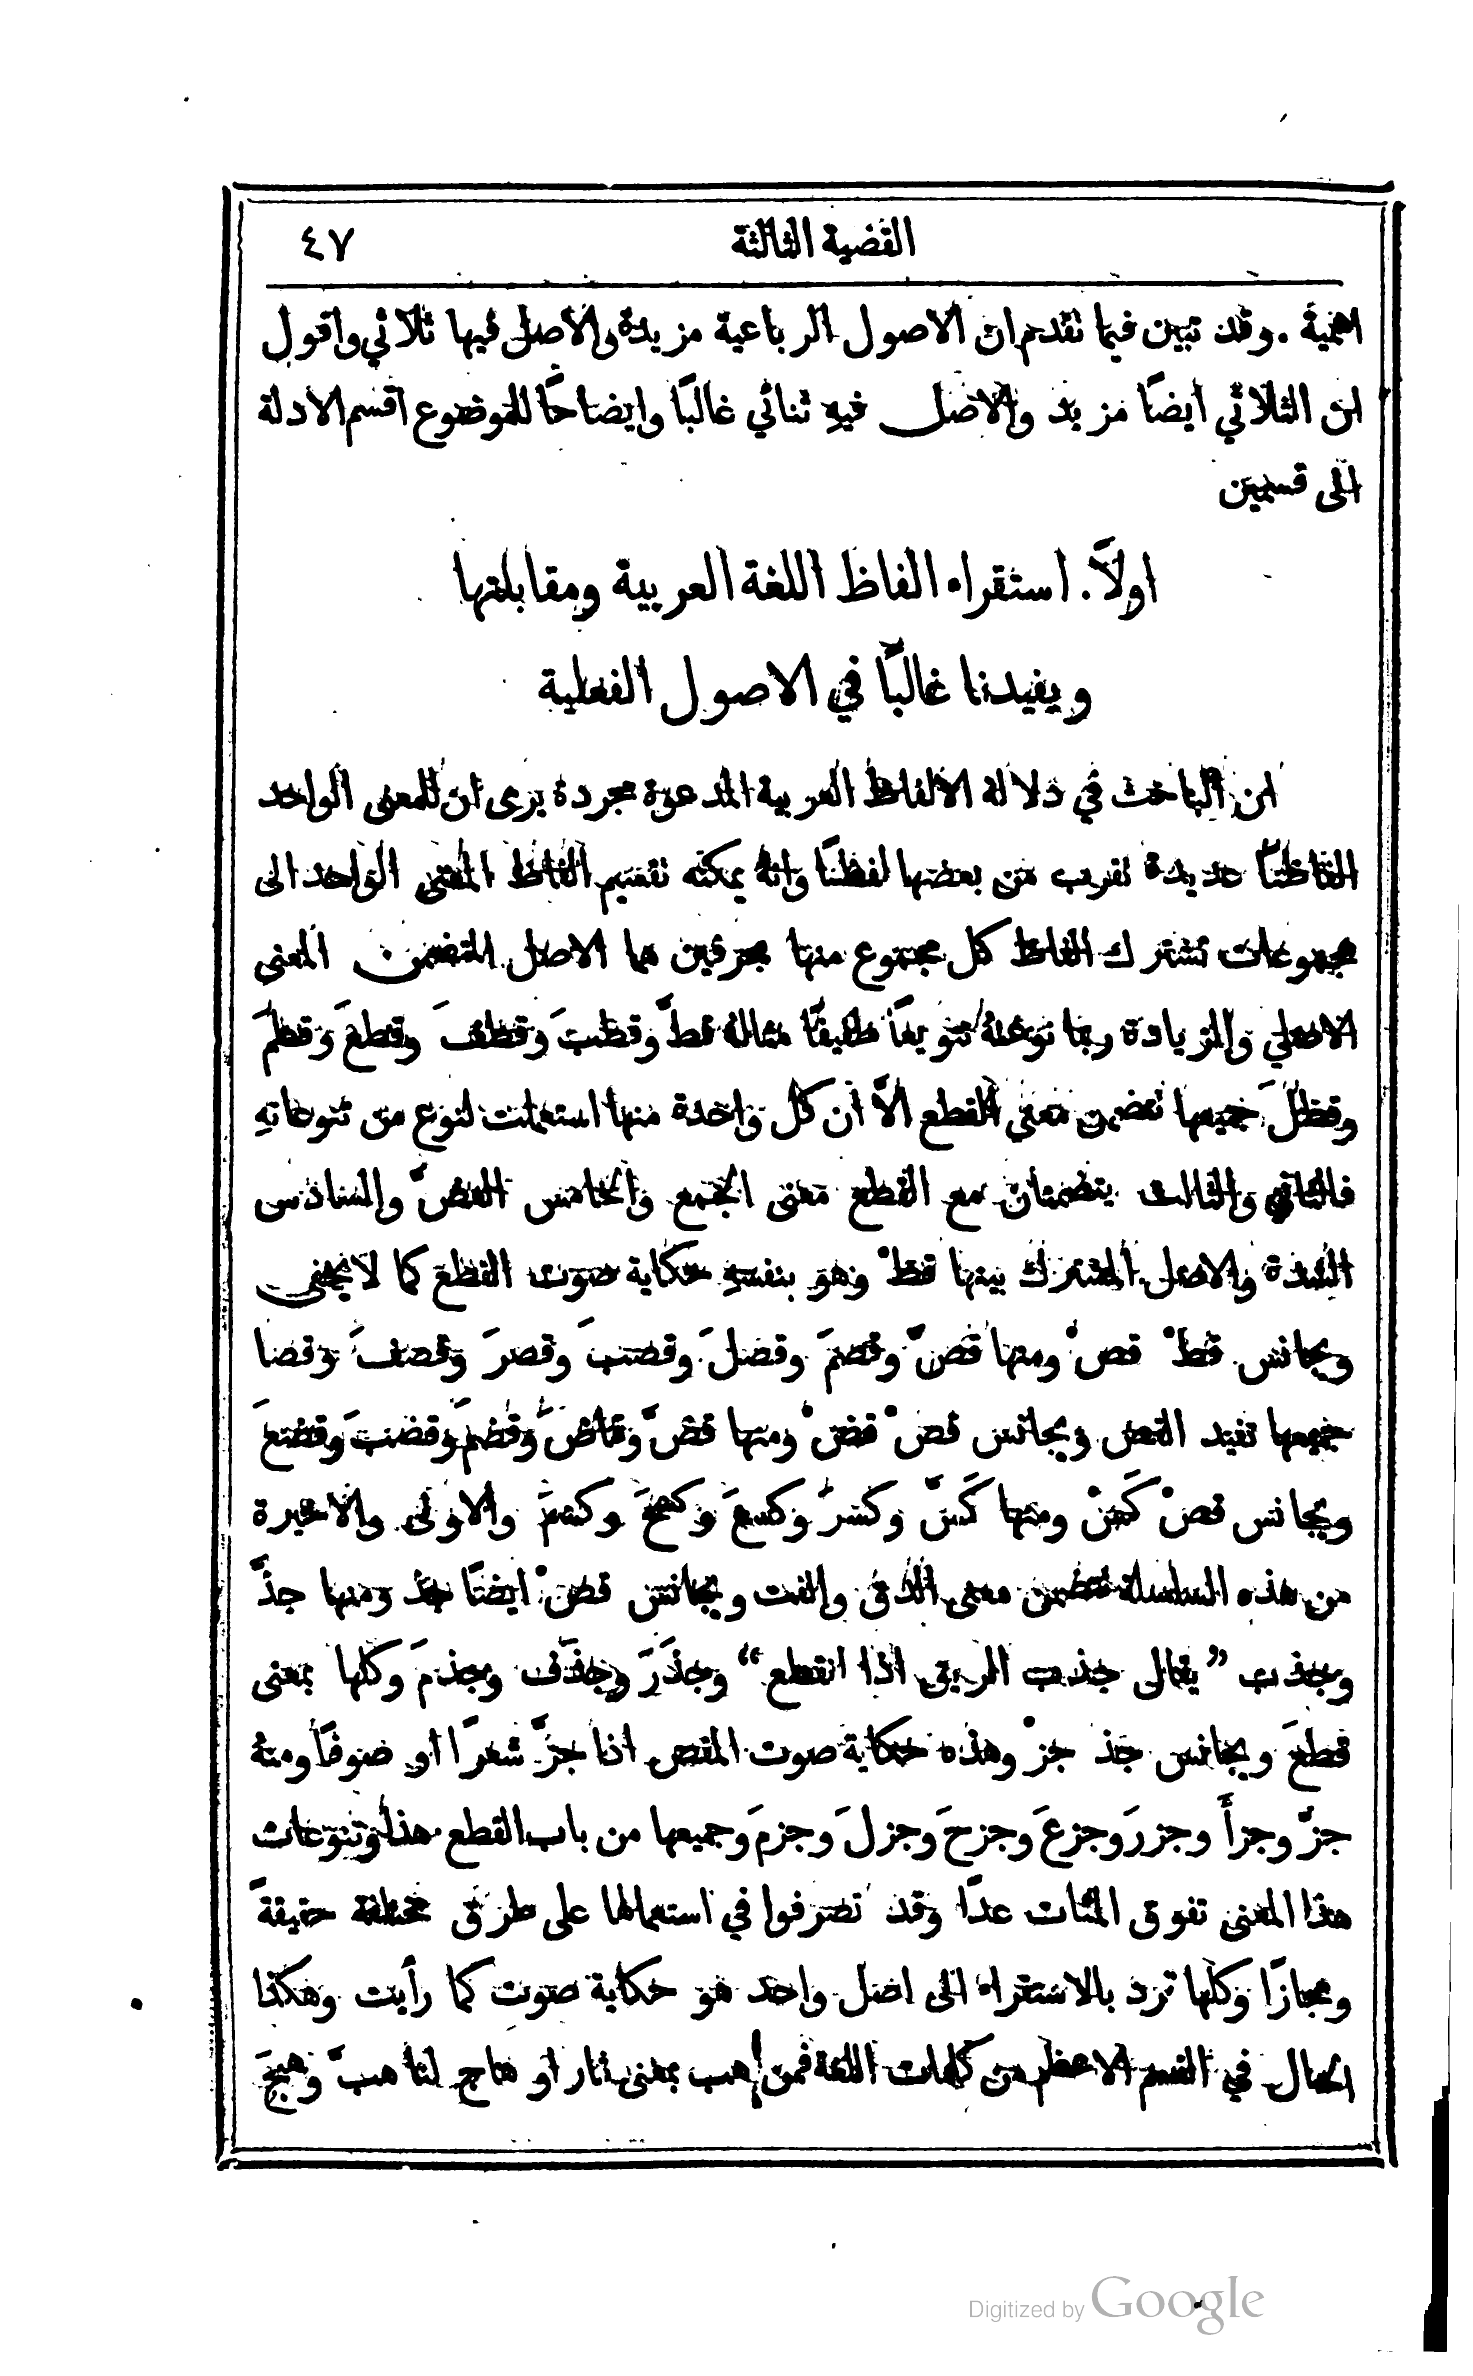 القضية الثالثة ٤٧
اهمية . وقد تبين فيما تقدم ان الاصول الرباعية مزيدة والاصل فيها ثلاثي واقول
ان الثلاثي ايضًا مزيد والاصل فيهِ ثنائي غالبًا وايضاحًا للموضوع اقسم الادلة
الى قسمين
اولاً . استقراء الفاظ اللغة العربية ومقابلتها
ويفيدنا غالبًا في الاصول الفعلية
ان الباحث في دلالة الالفاظ العربية المدعوة مجردة يرى ان للمعنى الواحد
الفاظًا عديدة تقرب من بعضها لفظًا وانهُ يمكنه تقسيم الفاظ المعنى الواحد الى
مجموعات تشترك الفاظ كل مجموع منها بحرفين هما الاصل المتضمن المعنى
الاصلي والزيادة ربما نوعتهُ تنويعًا طفيفًا مثالهُ قطَّ وقطبَ وقطفَ وقطعَ وقطمَ
وقطلَ جميعها تضمن معنى القطع الاَّ ان كل واحدة منها استعملت لنوع من تنوعاتهِ
فالثاني والثالث يتضمنان مع القطع معنى الجمع والخامس العضّ والسادس
الشدة والاصل المشترك بينها قطْ وهو بنفسهِ حكاية صوت القطع كما لا يخفى
ويجانس قطْ قصْ ومنها قصَّ وقصمَ وقصلَ وقصبَ وقصرَ وقصفَ وقصا
جميعها تفيد القص ويجانس قصْ قضْ ومنها قضَّ وقاضَ وقضمَ وقضبَ وقضعَ
ويجانس قصْ كَسْ ومنها كَسَّ وكسرَ وكسعَ وكسحَ وكسمَ والاولى والاخيرة
من هذه السلسلة تتضمن معنى الدق والفت ويجانس قصْ ايضًا جذ ومنها جذَّ
وجذب ”يقال جذب الريق اذا انقطع“ وجذَرَ وجذَف وجذمَ وكلها بمعنى
قطعَ ويجانس جذ جزْ وهذه حكاية صوت المقص اذا جزَّ شعرًا او صوفًا ومنهُ
جزَّ وجزأَ وجزرَ وجزعَ وجزحَ وجزلَ وجزمَ وجميعها من باب القطع هذا وتنوعات
هذا المعنى تفوق المئات عدًّا وقد تصرفوا في استعمالها على طرق مختلفة حقيقةً
ومجازًا وكلها ترد بالاستقراء الى اصل واحد هو حكاية صوت كما رأيت وهكذا
الحال في القسم الاعظم من كلمات اللغة فمن هب بمعنى ثار او هاج لنا هبَّ وهبجَ
Digitized by Google